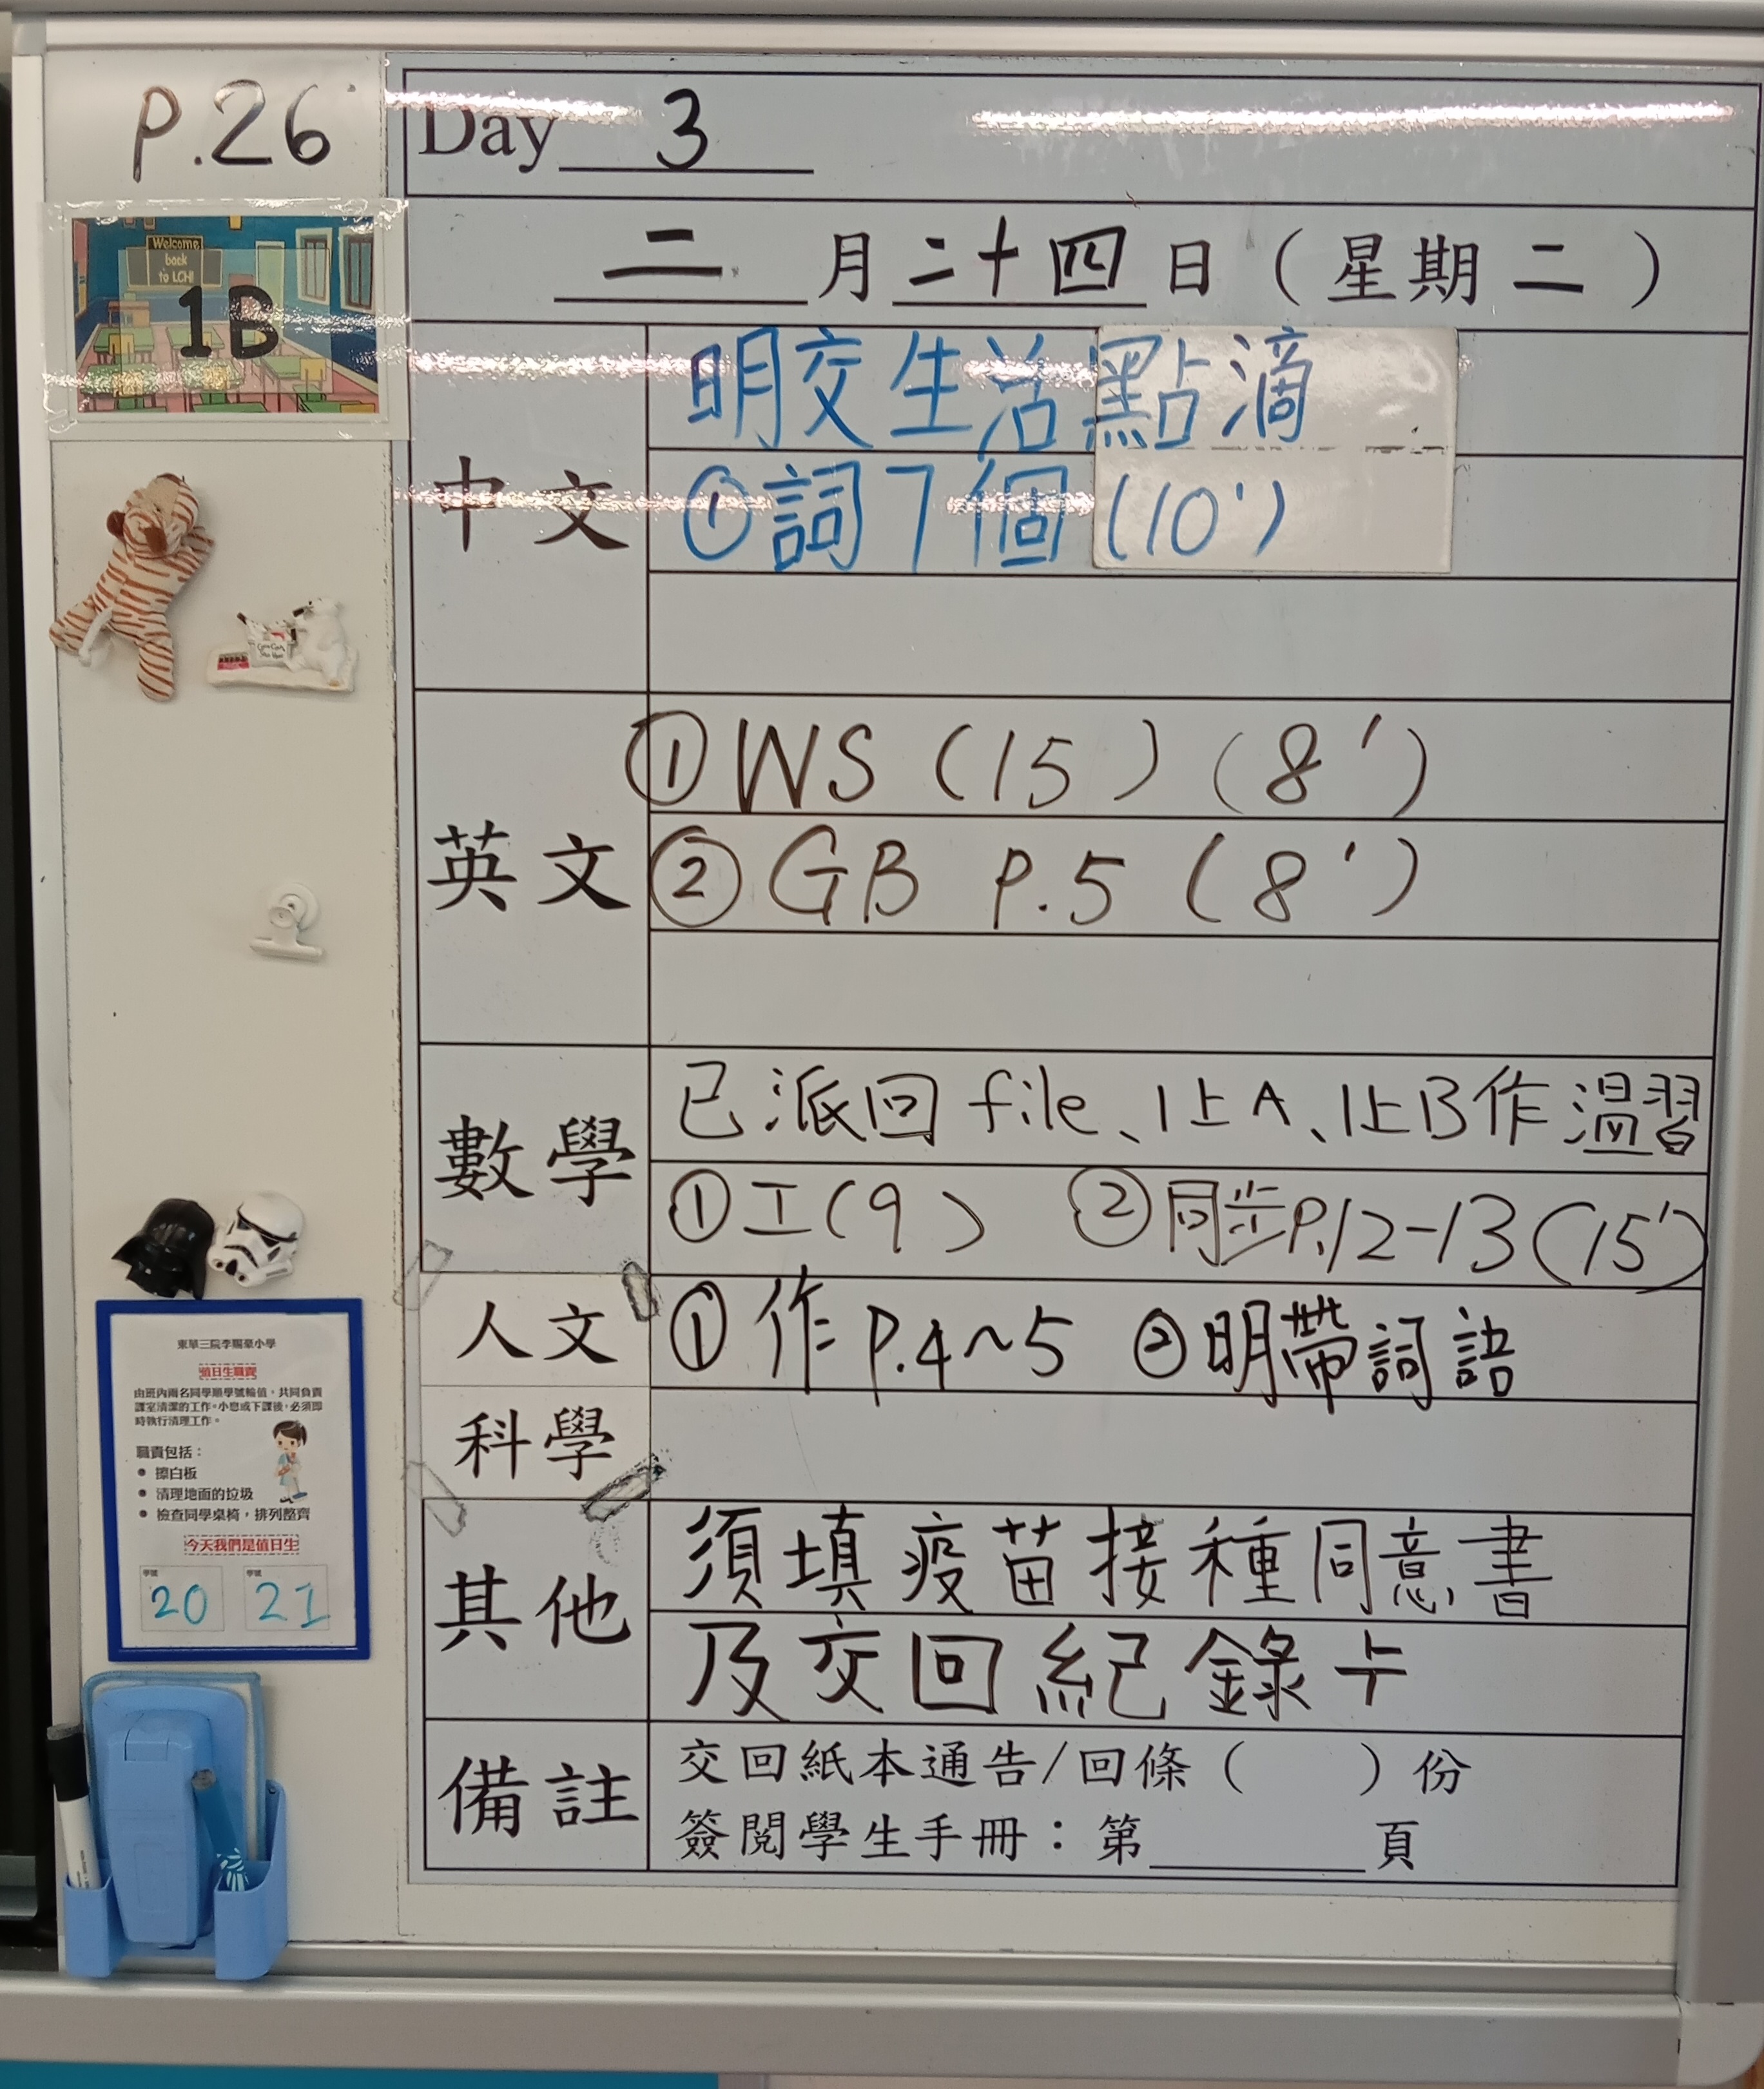 P.26
Day 3
二月二十四日（星期二）
Welcome
back
to LCH!
1B
中文
明交生活點滴
①詞7個(10')
英文
①WS (15) (8')
② GB P.5 (8')
數學
已派回 file、1上A、1上B作溫習
①工(9) ②同步P.12-13(15')
人文
① 作 P.4~5 ②明帶詞語
科學
其他
須填疫苗接種同意書
及交回紀錄卡
備註
交回紙本通告/回條（ ）份
簽閱學生手冊：第 頁
東華三院李賜豪小學
值日生職責
由班內兩名同學順學號輪值，共同負責
課室清潔的工作。小息或下課後，必須即
時執行清理工作。
職責包括：
• 擦白板
• 清理地面的垃圾
• 檢查同學桌椅，排列整齊
今天我們是值日生
學號 學號
20 21